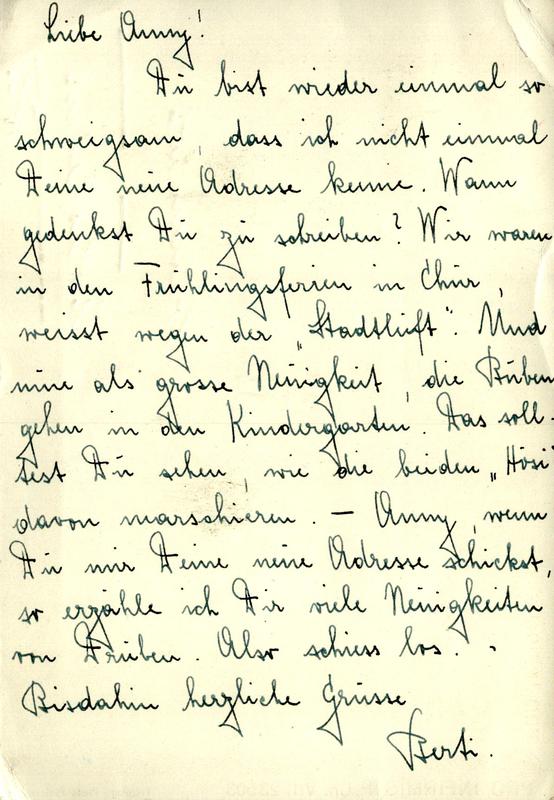 Liebe Anny!
Du bist wieder einmal so
schweigsam, dass ich nicht einmal
Deine neue Adresse kenne. Wann
gedenkst Du zu schreiben? Wir waren
in den Frühlingsferien in Chur,
weisst wegen der „Stadtluft". Und
nune als grosse Neuigkeit, die Buben
gehen in den Kindergarten. Das soll-
test Du sehen, wie die beiden „Hösi"
davon marschieren. – Anny, wenn
Du mir Deine neue Adresse schickst,
so erzähle ich Dir viele Neuigkeiten
von Druben. Also schiess los.
Bisdahin herzliche Grüsse
Berti.